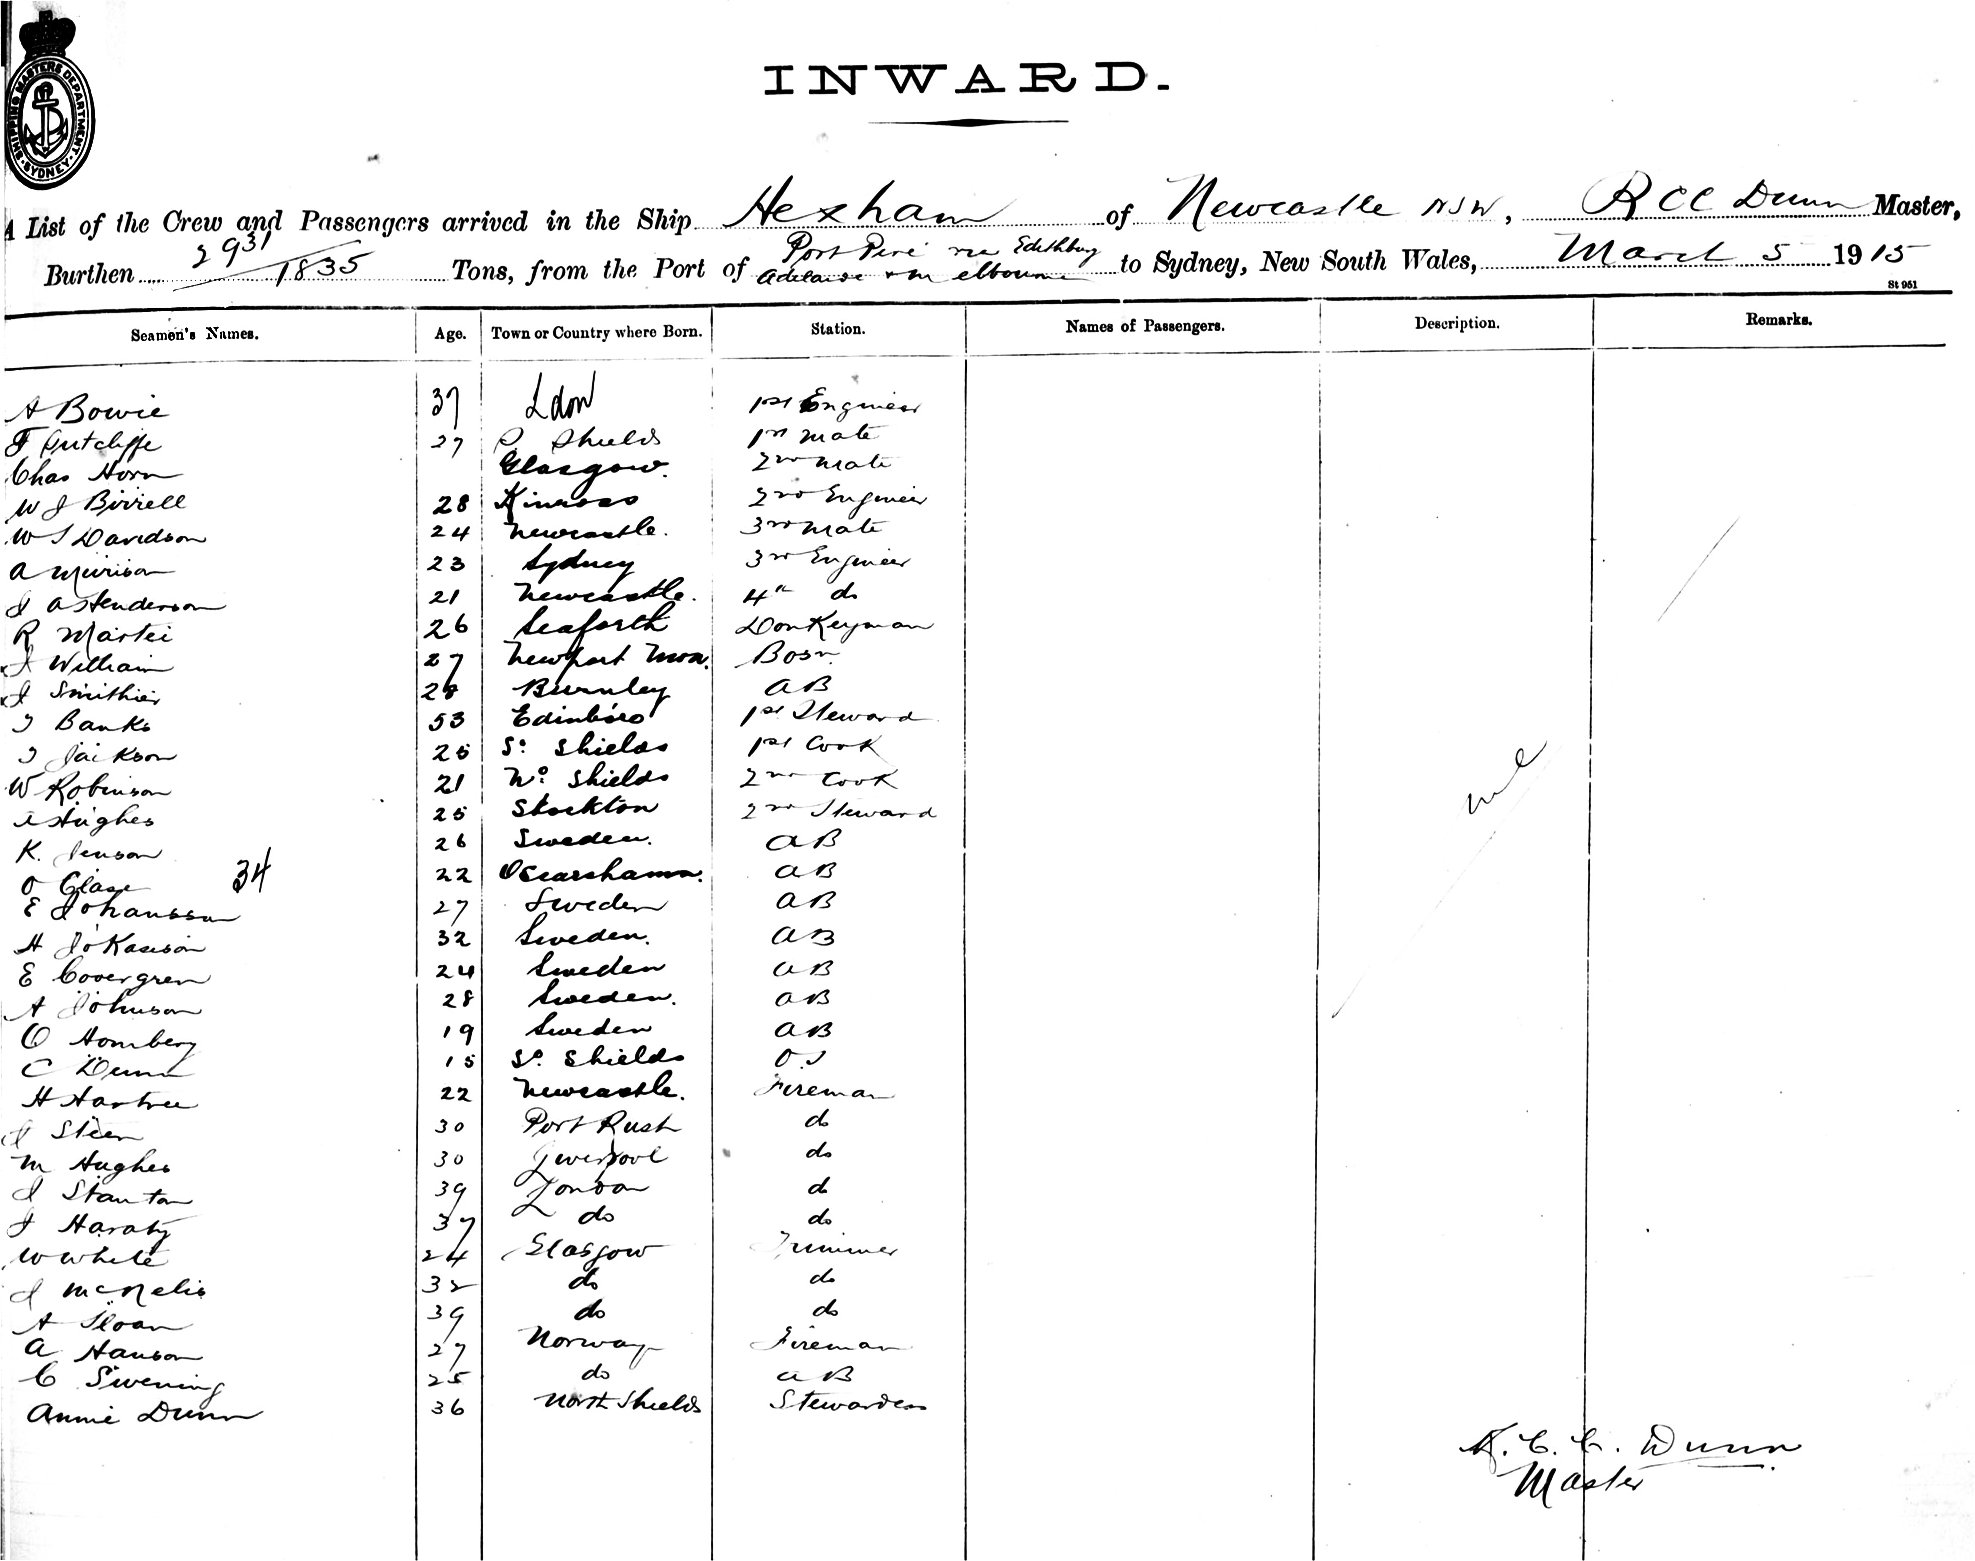 SHIPPING MASTERS DEPARTMENT SYDNEY
INWARD.
A List of the Crew and Passengers arrived in the Ship Hexham of Newcastle NSW, R C C Dunn Master,
Burthen 2931/1835 Tons, from the Port of Port Pirie via Edithburg Adelaide & Melbourne to Sydney, New South Wales, March 5 1915
St 951
Seamen's Names. Age. Town or Country where Born. Station. Names of Passengers. Description. Remarks.
A Bowie 37 Ldon 1st Engineer
F Sutcliffe 27 S Shields 1st Mate
Chas Horn Glasgow. 2nd Mate
W J Birrell 28 Kinross 2nd Engineer
W S Davidson 24 Newcastle. 3rd Mate
A Muirison 23 Sydney 3rd Engineer
J A Henderson 21 Newcastle. 4th do
R Martei 26 Seaforth Donkeyman
J William 27 Newport Mon. Bosn.
J Smithier 28 Burnley AB
J Banks 53 Edinboro 1st Steward
J Jackson 25 So Shields 1st Cook
W Robinson 21 No Shields 2nd Cook
A Hughes 25 Stockton 2nd Steward
K. Jenson 26 Sweden. AB
O Clase 34 22 Oscarshamn. AB
E Johansson 27 Sweden AB
H 32 Sweden. AB
E Covergren 24 Sweden AB
A Johnson 28 Sweden. AB
O Homberg 19 Sweden AB
C Dunn 15 So Shields O.S
H Hartree 22 Newcastle. Fireman
J Steen 30 Port Rush do
M Hughes 30 Liverpool do
J Stanton 39 London do
J Haraty 37 do do
W White 24 Glasgow Trimmer
J McNelis 32 do do
A Sloan 39 do do
A Hanson 27 Norway Fireman
C Swening 25 do AB
Annie Dunn 36 North Shields Stewardess
R. C. C. Dunn
Master